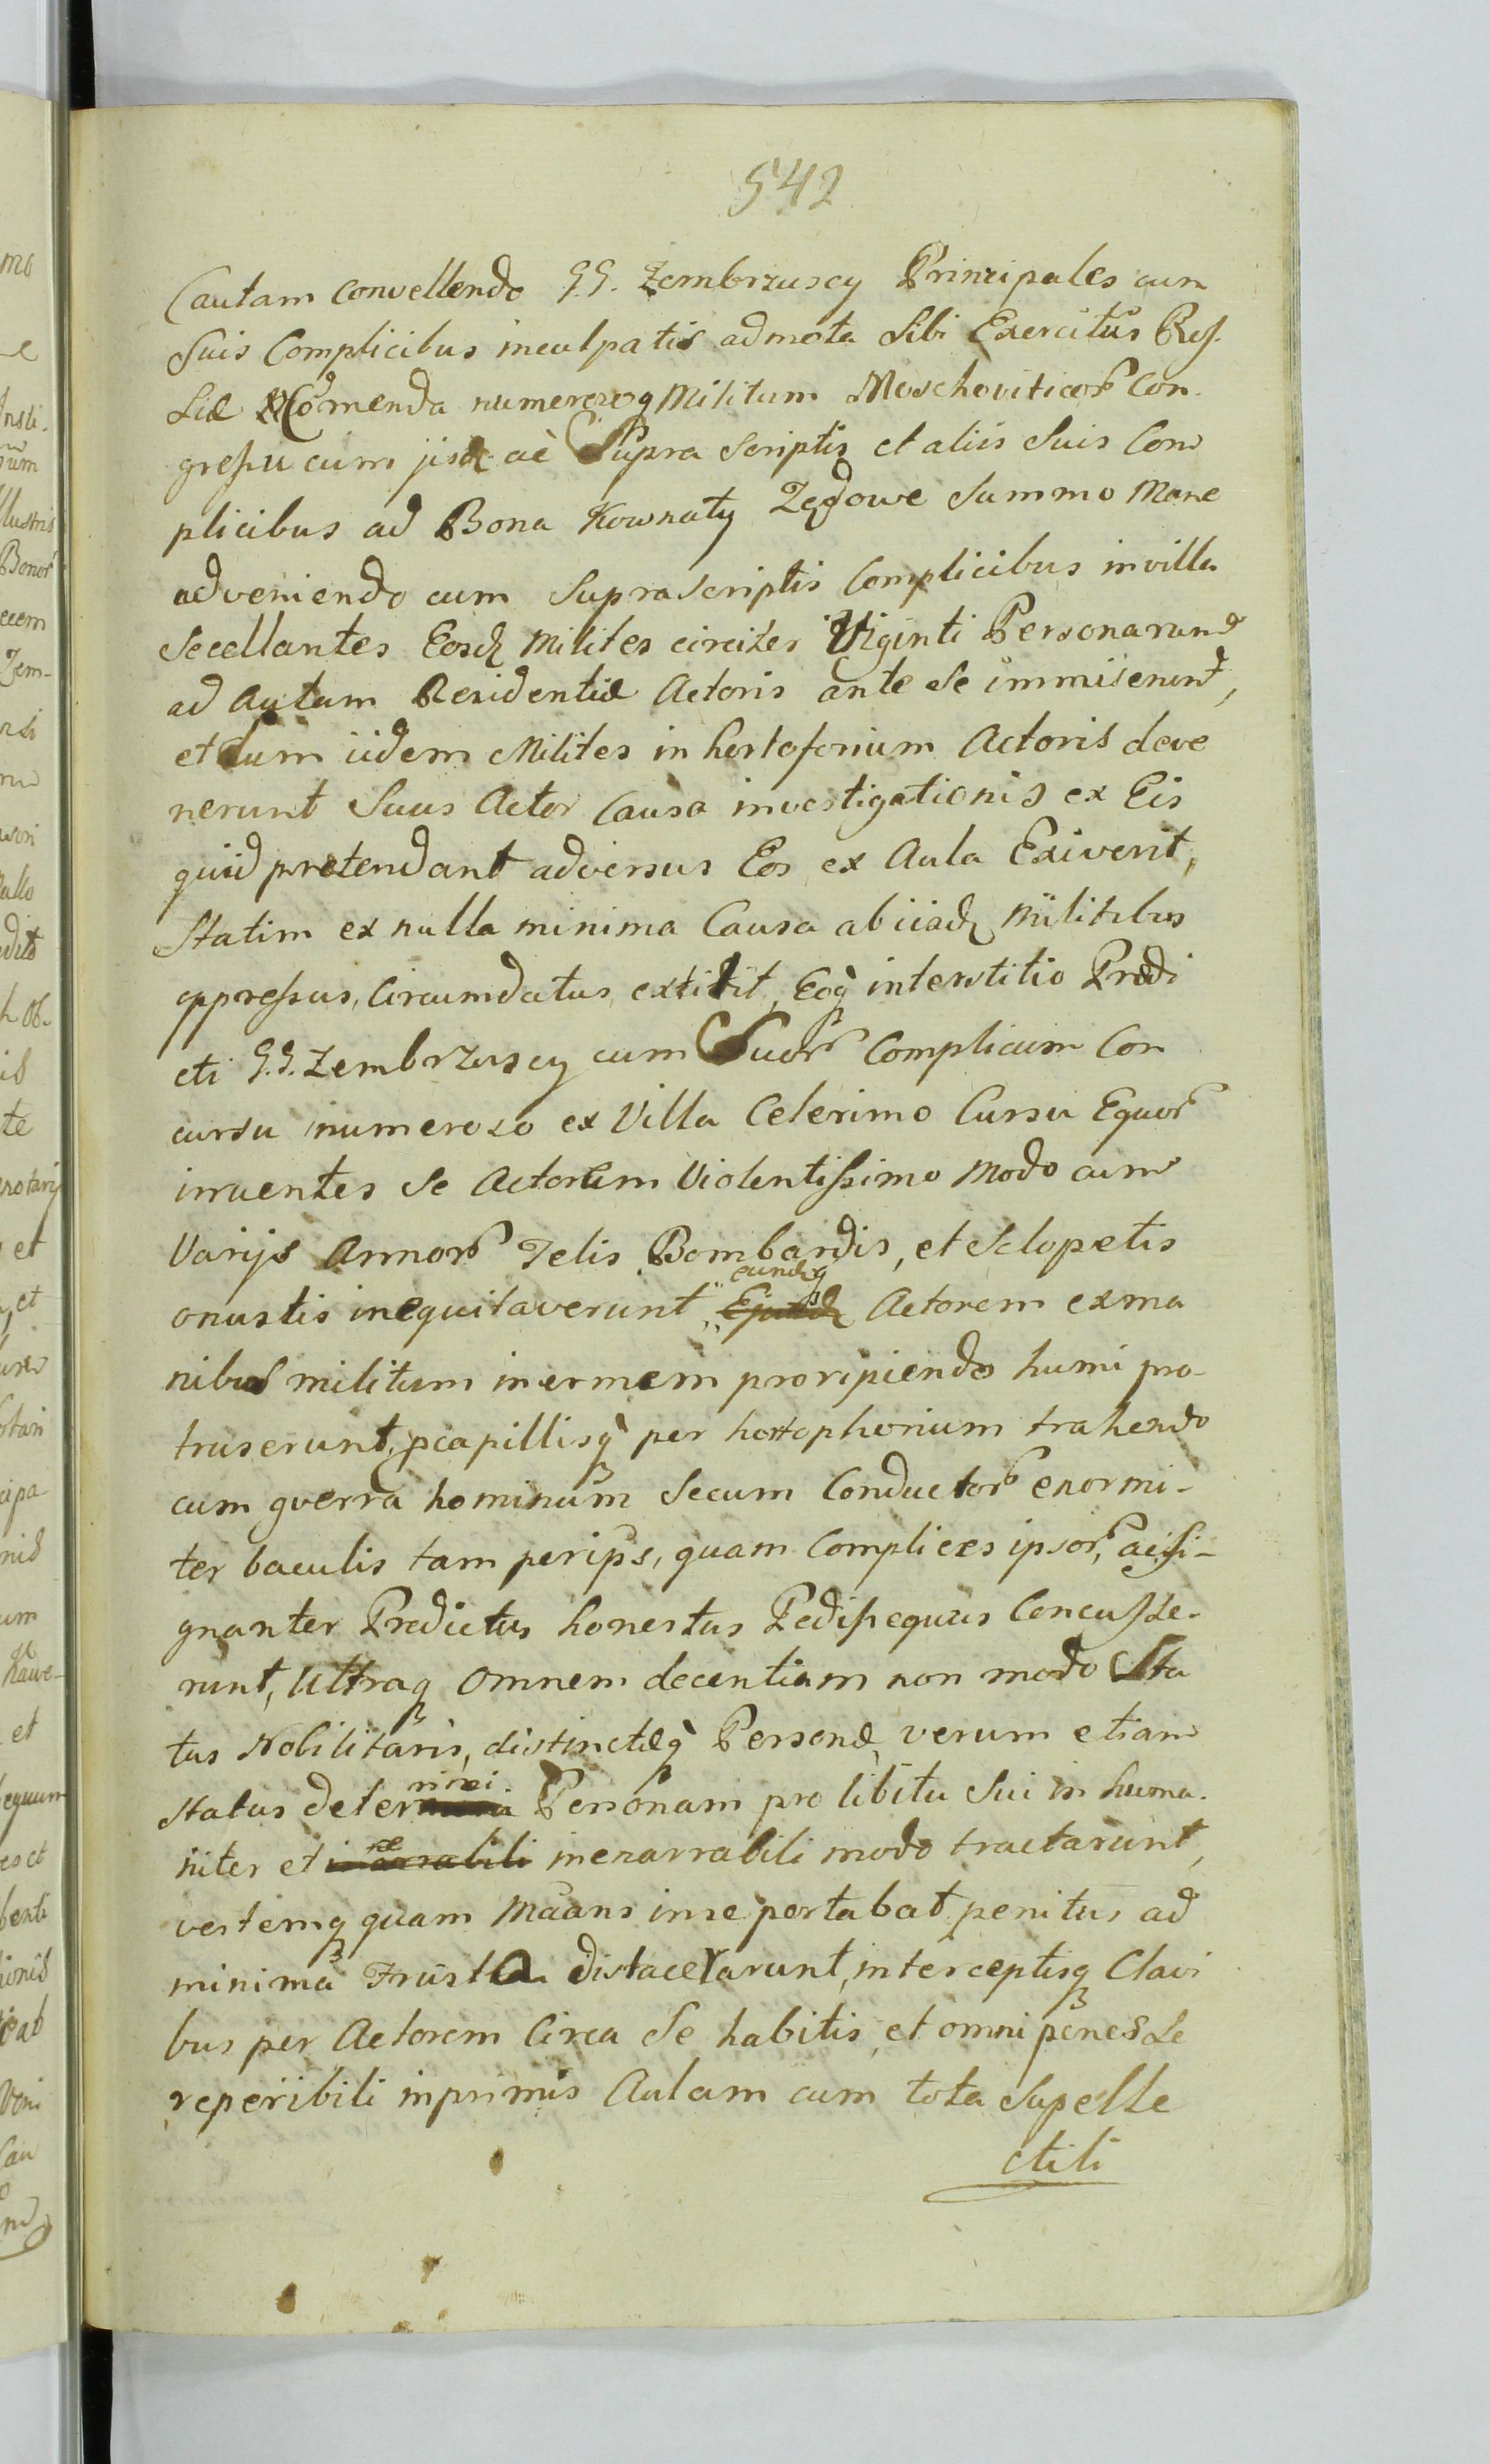 542
Cautam convellendo G.G. Zembrzuscy Principales cum
Suis Complicibus inculpatis admota Sibi Exercitus Ruſ-
siæ Comenda numerozoq Militum Moschoviticor Con-
greſsu cum jisd ac Supra Scriptis et aliis Suis Com
plicibus ad Bona Kownaty Zędowe Summo Mane
adveniendo cum Suprascriptis Complicibus in villa
Secellantes Eosd Milites circiter Viginti Personarum
ad Aulam Residentiæ Actoris ante Se immiserunt,
et dum iidem Milites in hortoforium Actoris deve
nerunt Suus Actor Causa investigationis ex Eis
quid pretendant adversus Eos ex Aula Exiverit,
Statim ex nulla minima Causa ab iisd Militibus
oppreſsus, Circumdatus extitit, Eoq interstitio Prædi
cti G.G. Zembrzuscy cum Suor Complicum Con
cursu numerozo ex Villa Celerimo Cursu Equor
irruentes Se Actorem Violentiſsimo Modo cum
Varijs Armor Telis Bombardis, et Sclopetis
onustis inequitaverunt eundq Actorem ex ma
nibus militum inermem proripiendo humi pro-
truserunt, capillisq per hortophorium trahendo
cum gverra hominum Secum Conductor enormi-
ter baculis tam per ips, quam Complices ipsor, ac si-
gnanter Predictus honestus Pediſsequus Concuſse-
runt, Ultraq Omnem decentiam non modo Sta
tus Nobilitaris, distinctæq Personæ, verum etiam
status deterrimi Personam pro libitu Sui in huma-
niter et inenarrabili modo tractarunt,
vestemq quam Maans in se portabat penitus ad
minima Frusta dislacerarunt, interceptisq Clavi
bus per Actorem Circa Se habitis, et omni penes Se
reperibili inprimis Aulam cum tota Supelle
ctili